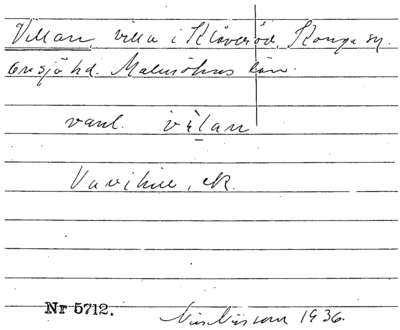 Villan, villa i Klöveröd, Konga sn.
Onsjö hd. Malmöhus län.
vanl. vìlan
Nr 5712.
Nils Nilsson 1936.